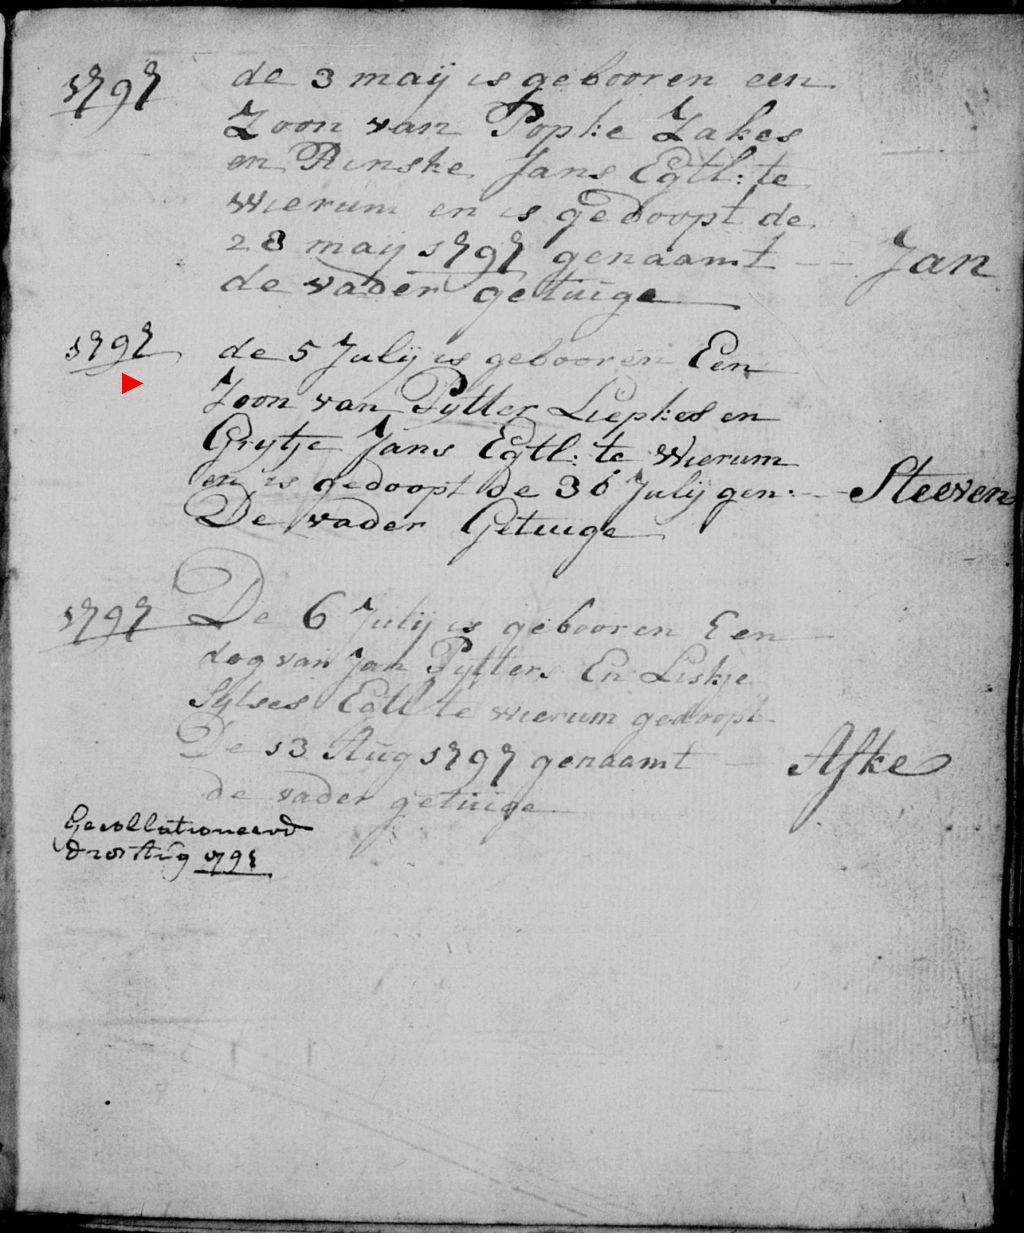 1797 de 3 maij is gebooren een
Zoon van Popke Zakes
en Rinske Jans Egtl: te
wierum en is gedoopt de
28 maij 1797 genaamt — Jan
de vader getuige
1797 de 5 Julij is gebooren Een
Zoon van Pytter Liepkes en
Grytje Jans Egtl: te wierum
en is gedoopt de 30 Julij gen: — Steeven
De vader Getuige
1797 De 6 Julij is gebooren Een
dog van Jan Pytters En Liskje
Sytses Egtl te wierum gedoopt
De 13 Aug 1797 genaamt — Afke
de vader getuige
Gecollationeerd
Aug